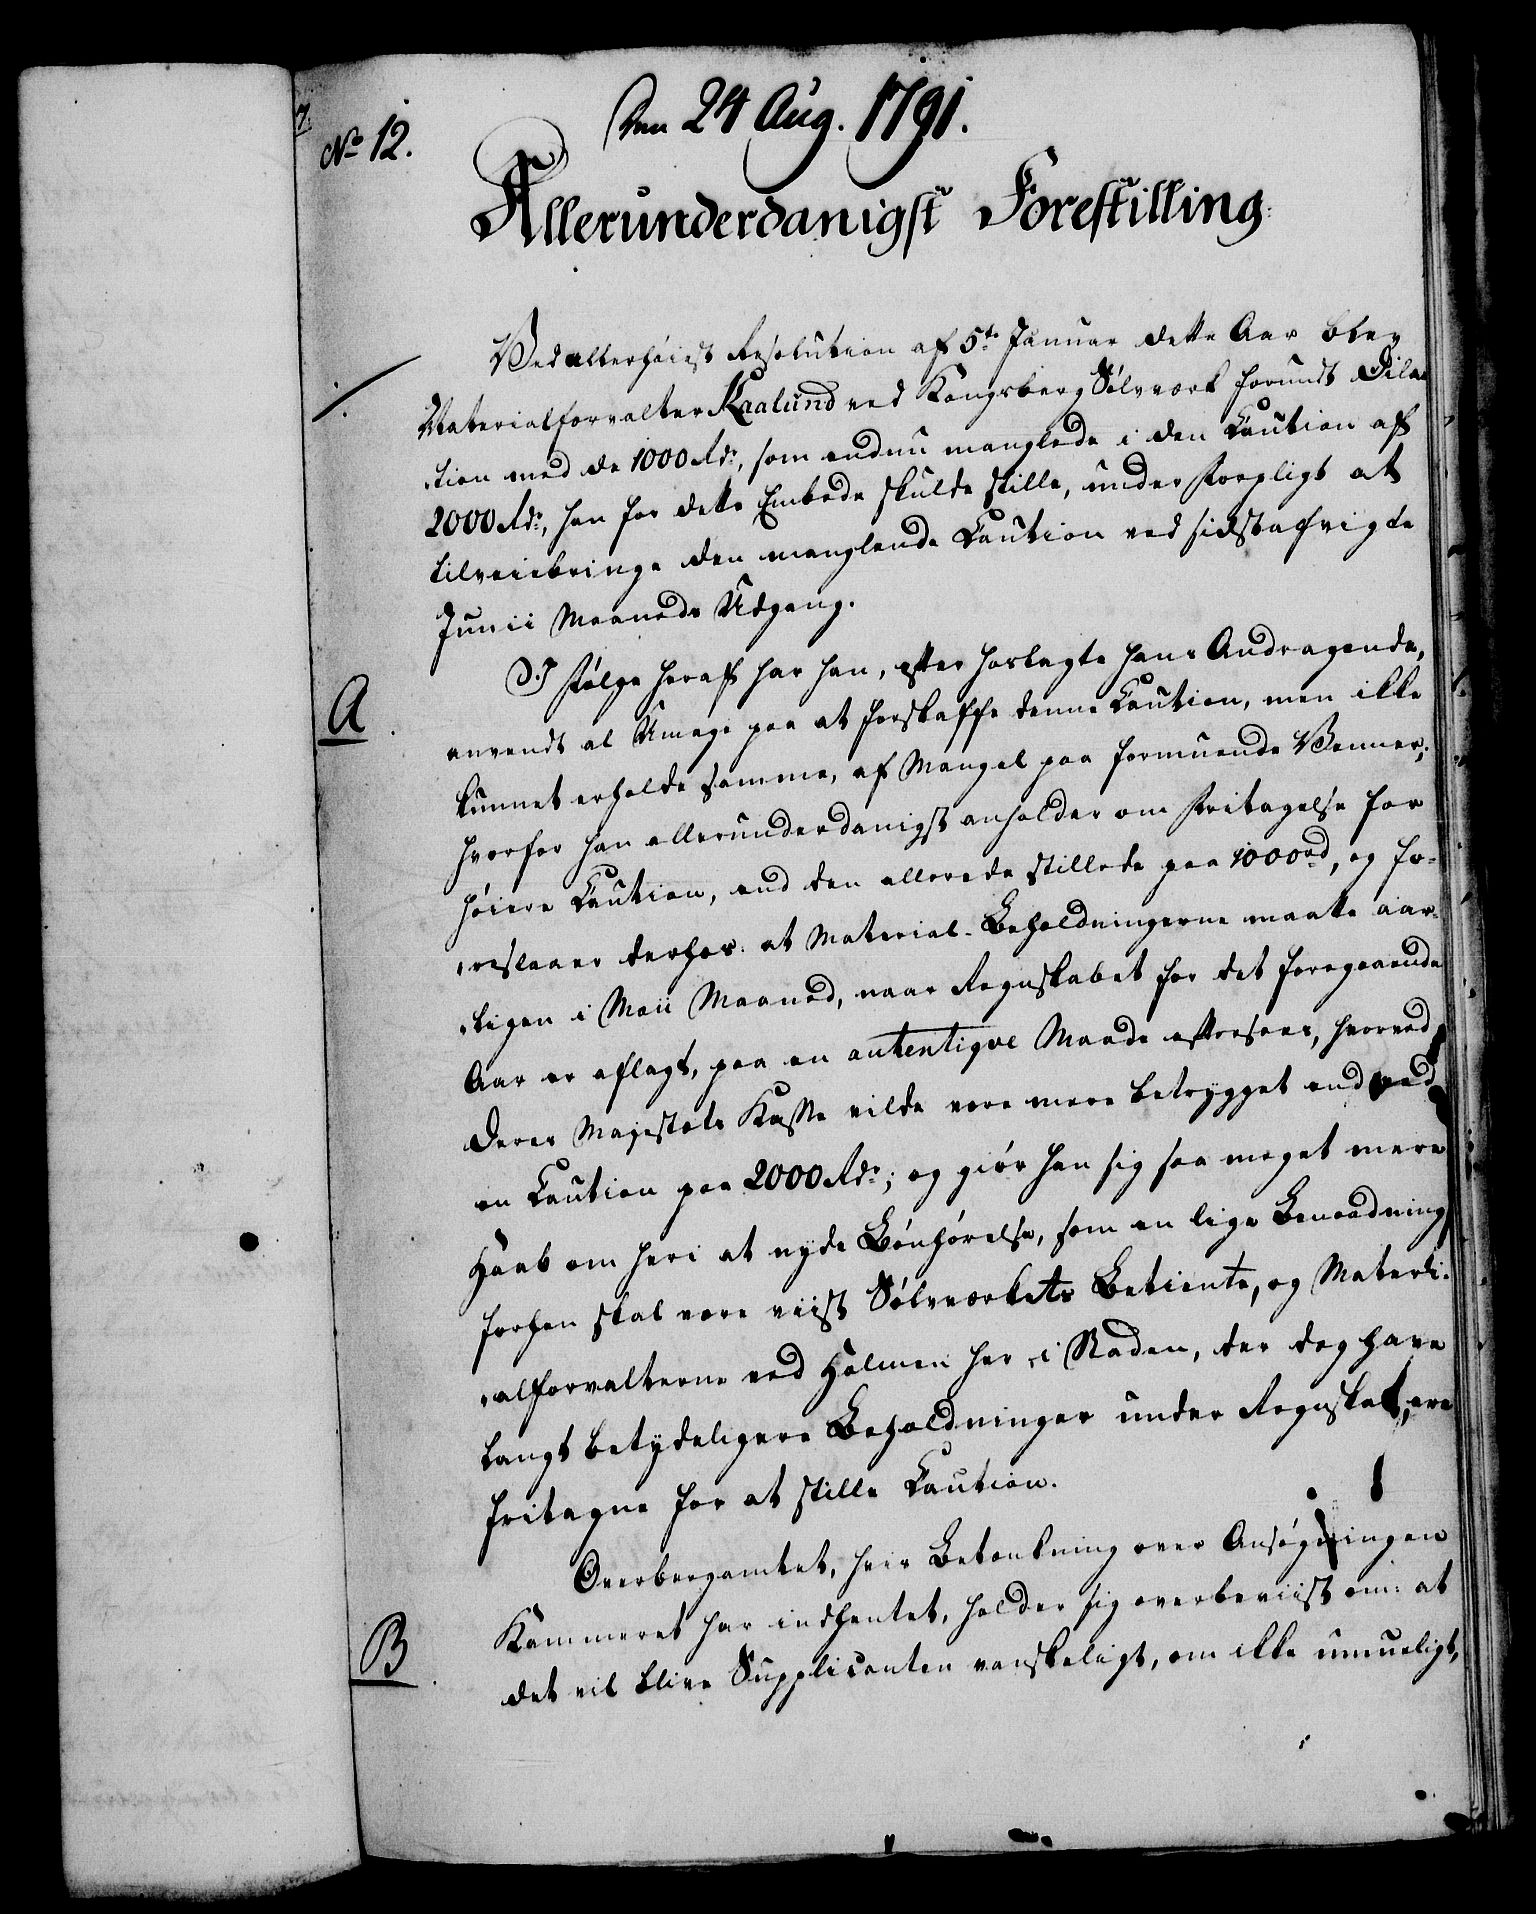 No 12.
Den 24 Aug. 1791.
Allerunderdanigst Forestilling.
Ved allerhøiest Resolution af 5te Januar dette Aar blev
Materialforvalter Kaalund ved Kongsberg Sølvværk forundt Dila-
tion med de 1000 Rdr, som endnu manglede i den Caution af
2000 Rdr, han for dette Embede skulde stille, under Forpligt at
tilveiebringe den manglende Caution ved sidstafvigte
Junii Maaneds Udgang.
A
I Følge heraf har han, efter hoslagte hans Andragende,
anvendt al Umage paa at forskaffe denne Caution, men ikke
kunnet erholde samme, af Mangel paa formuende Venner;
hvorfor han allerunderdanigst anholder om Fritagelse for
høiere Caution, end den allerede stillede paa 1000 rd, og fo-
reslaaer derhos: at Material-Beholdningerne maatte aar-
ligen i Maii Maaned, naar Regnskabet for det foregaaende
Aar er aflagt, paa en autentiqve Maade eftersees, hvorved
Deres Majestæts Kasse vilde være mere betrygget end ved
en Caution paa 2000 Rdr; og giør han sig saa meget mere
Haab om heri at nyde Bønhørelse, som en lige Benaadning
forhen skal være viist Sølvværkets Betiente, og Materi-
alforvalterne ved Holmen her i Staden, der dog have
langt betydeligere Beholdninger under Regnskab, ere
fritagne for at stille Caution.
B
Overbergamtet, hvis Betænkning over Ansøgningen
Kammeret har indhentet, holder sig overbeviist om: at
det vil blive Supplicanten vanskeligt, om ikke umueligt,